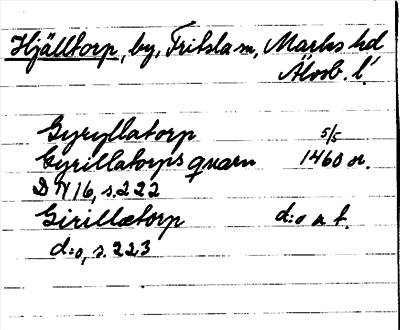 Hjälltorp, by, Fritsla sn, Marks hd
Älvsb. l.
Gyryllatorp 5/5
Cyrillatorps quarn 1460 or.
DN 16, s. 222
Girillætorp d:o a. t.
d:o, s. 223